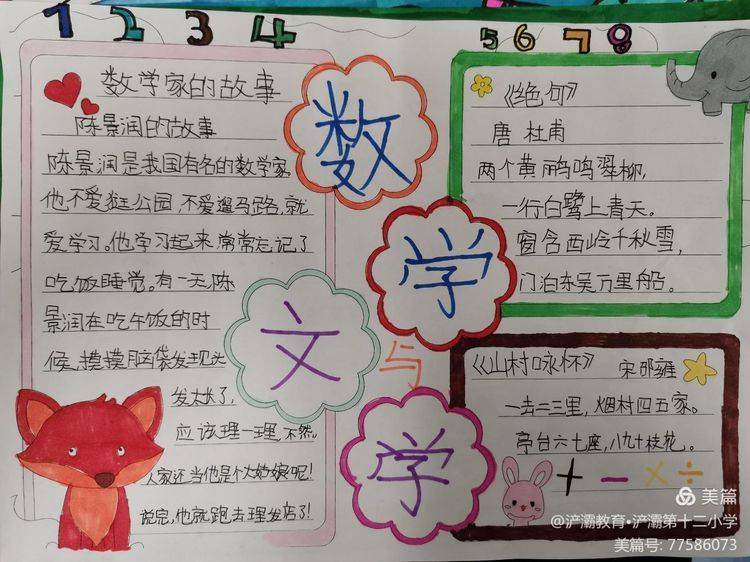 1 2 3 4
5 6 7 8
数学家的故事
陈景润的故事
陈景润是我国有名的数学家,
他不爱逛公园,不爱遛马路,就
爱学习。他学习起来常常忘记了
吃饭睡觉。有一天,陈
景润在吃午饭的时
候,摸摸脑袋发现头
发太长了,
应该理一理,不然,
人家还当他是个大姑娘呢!
说完,他就跑去理发店了!
数
学
与
文
学
《绝句》
唐 杜甫
两个黄鹂鸣翠柳,
一行白鹭上青天。
窗含西岭千秋雪,
门泊东吴万里船。
《山村咏怀》 宋邵雍
一去二三里,烟村四五家。
亭台六七座,八九十枝花。
+ - × ÷
美篇
@浐灞教育·浐灞第十二小学
美篇号: 77586073